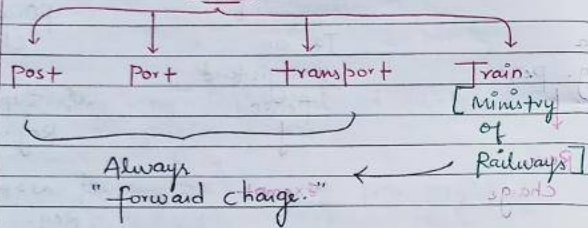 Post Port transport Train
[Ministry
of
Railways]
Always
"forward charge."